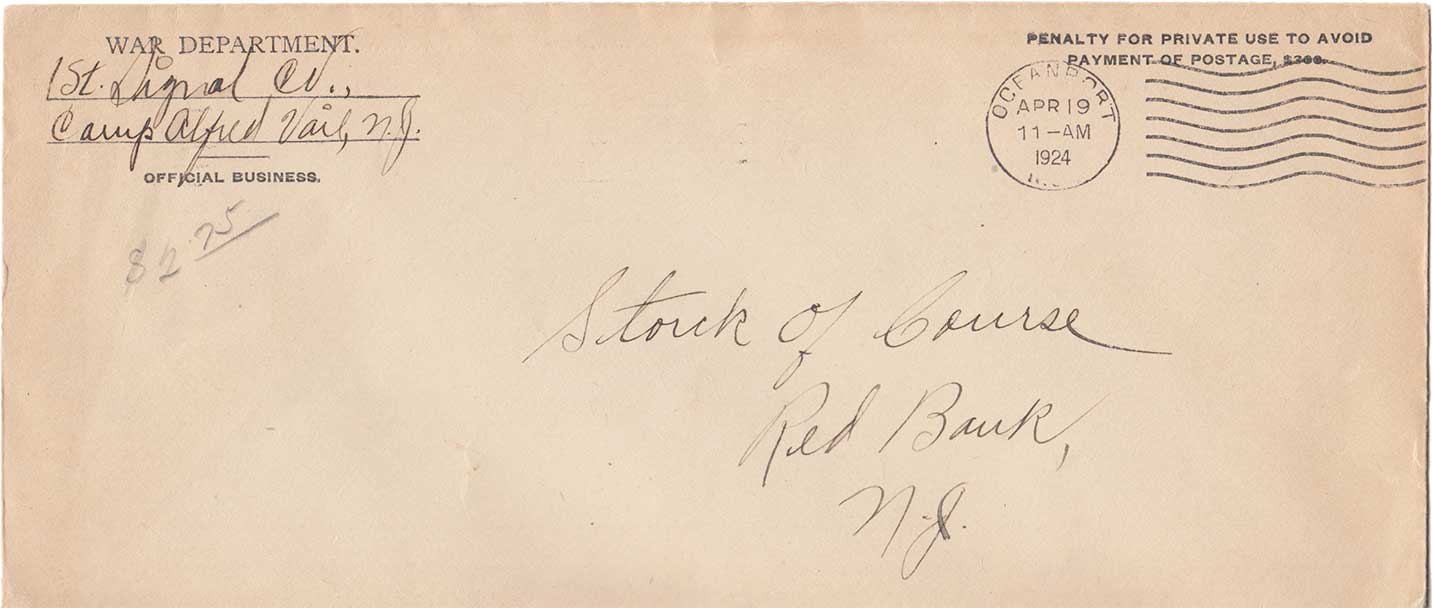 WAR DEPARTMENT.
1St. Signal Co.,
Camp Alfred Vail, N.J.
OFFICIAL BUSINESS.
PENALTY FOR PRIVATE USE TO AVOID
PAYMENT OF POSTAGE, $300.
OCEANPORT
APR 19
11-AM
1924
N.J.
82 75
Stork of Course
Red Bank,
N.J.